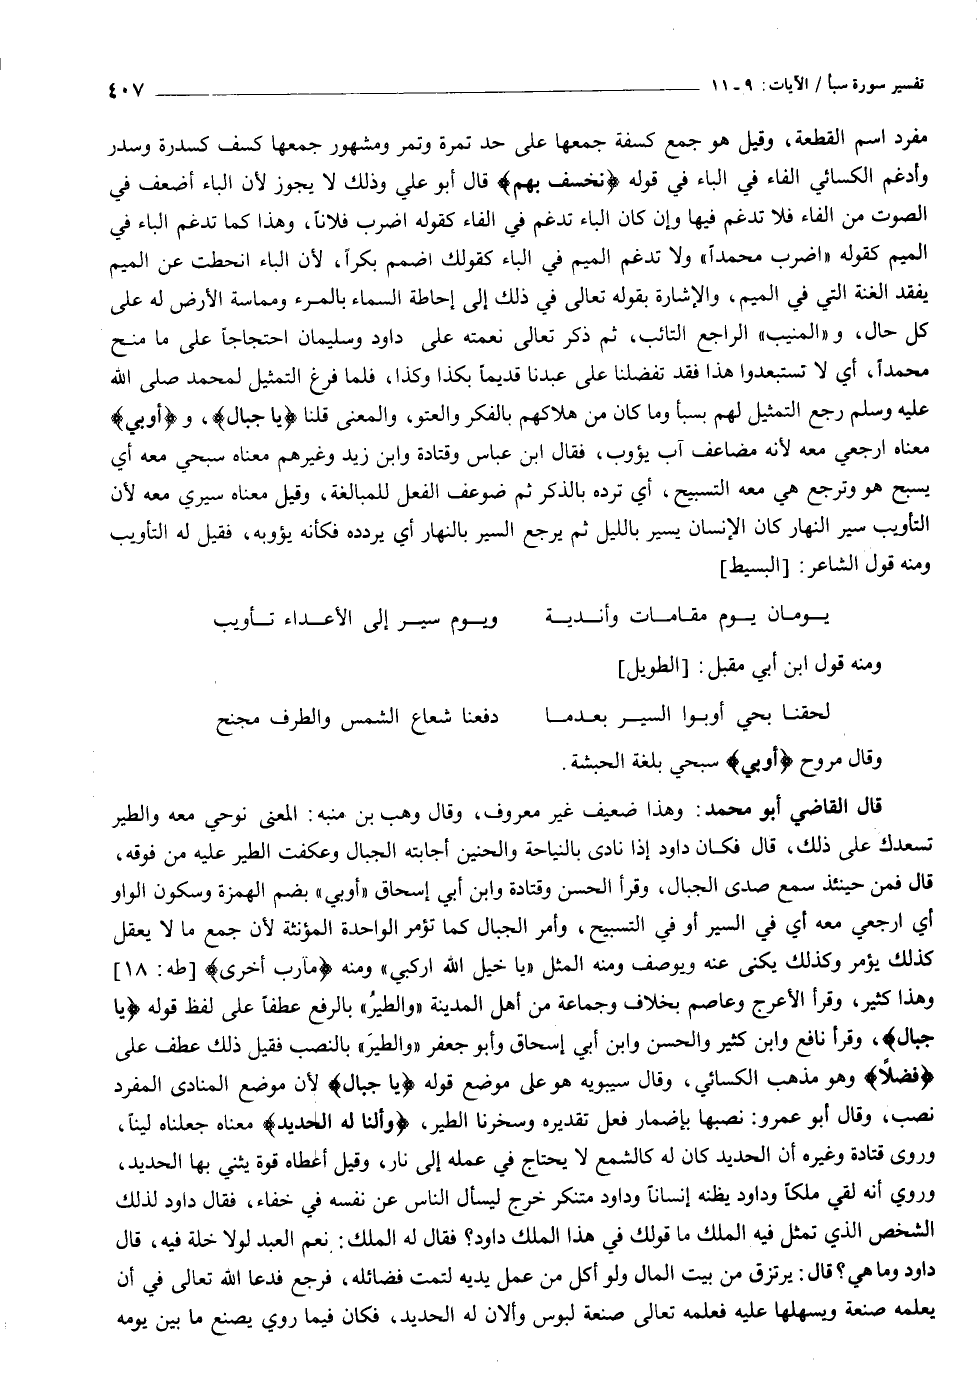 تفسير سورة سبأ / الآيات: ٩ ـ ١١ ٤٠٧
مفرد اسم القطعة، وقيل هو جمع كسفة جمعها على حد تمرة وتمر ومشهور جمعها كسف كسدرة وسدر
وأدغم الكسائي الفاء في الباء في قوله ﴿نخسف بهم﴾ قال أبو علي وذلك لا يجوز لأن الباء أضعف في
الصوت من الفاء فلا تدغم فيها وإن كان الباء تدغم في الفاء كقوله اضرب فلاناً، وهذا كما تدغم الباء في
الميم كقوله «اضرب محمداً» ولا تدغم الميم في الباء كقولك اضمم بكراً، لأن الباء انحطت عن الميم
يفقد الغنة التي في الميم، والإشارة بقوله تعالى في ذلك إلى إحاطة السماء بالمرء ومماسة الأرض له على
كل حال، و «المنيب» الراجع التائب، ثم ذكر تعالى نعمته على داود وسليمان احتجاجاً على ما منح
محمداً، أي لا تستبعدوا هذا فقد تفضلنا على عبدنا قديماً بكذا وكذا، فلما فرغ التمثيل لمحمد صلى الله
عليه وسلم رجع التمثيل لهم بسبأ وما كان من هلاكهم بالفكر والعتو، والمعنى قلنا ﴿يا جبال﴾، و ﴿أوبي﴾
معناه ارجعي معه لأنه مضاعف آب يؤوب، فقال ابن عباس وقتادة وابن زيد وغيرهم معناه سبحي معه أي
يسبح هو وترجع هي معه التسبيح، أي ترده بالذكر ثم ضوعف الفعل للمبالغة، وقيل معناه سيري معه لأن
التأويب سير النهار كان الإنسان يسير بالليل ثم يرجع السير بالنهار أي يردده فكأنه يؤوبه، فقيل له التأويب
ومنه قول الشاعر: [البسيط]
يومان يوم مقامات وأندية ويوم سير إلى الأعداء تأويب
ومنه قول ابن أبي مقبل: [الطويل]
لحقنا بحي أوبوا السير بعدما دفعنا شعاع الشمس والطرف مجنح
وقال مروح ﴿أوبي﴾ سبحي بلغة الحبشة.
قال القاضي أبو محمد: وهذا ضعيف غير معروف، وقال وهب بن منبه: المعنى نوحي معه والطير
تسعدك على ذلك، قال فكان داود إذا نادى بالنياحة والحنين أجابته الجبال وعكفت الطير عليه من فوقه،
قال فمن حينئذ سمع صدى الجبال، وقرأ الحسن وقتادة وابن أبي إسحاق «أوبي» بضم الهمزة وسكون الواو
أي ارجعي معه أي في السير أو في التسبيح، وأمر الجبال كما تؤمر الواحدة المؤنثة لأن جمع ما لا يعقل
كذلك يؤمر وكذلك يكنى عنه ويوصف ومنه المثل «يا خيل الله اركبي» ومنه ﴿مآرب أخرى﴾ [طه: ١٨]
وهذا كثير، وقرأ الأعرج وعاصم بخلاف وجماعة من أهل المدينة «والطيرُ» بالرفع عطفاً على لفظ قوله ﴿يا
جبال﴾، وقرأ نافع وابن كثير والحسن وابن أبي إسحاق وأبو جعفر «والطيرَ» بالنصب فقيل ذلك عطف على
﴿فضلاً﴾ وهو مذهب الكسائي، وقال سيبويه هو على موضع قوله ﴿يا جبال﴾ لأن موضع المنادى المفرد
نصب، وقال أبو عمرو: نصبها بإضمار فعل تقديره وسخرنا الطير، ﴿وألنا له الحديد﴾ معناه جعلناه ليناً،
وروى قتادة وغيره أن الحديد كان له كالشمع لا يحتاج في عمله إلى نار، وقيل أعطاه قوة يثني بها الحديد،
وروي أنه لقي ملكاً وداود يظنه إنساناً وداود متنكر خرج ليسأل الناس عن نفسه في خفاء، فقال داود لذلك
الشخص الذي تمثل فيه الملك ما قولك في هذا الملك داود؟ فقال له الملك: نعم العبد لولا خلة فيه، قال
داود وما هي؟ قال: يرتزق من بيت المال ولو أكل من عمل يديه لتمت فضائله، فرجع فدعا الله تعالى في أن
يعلمه صنعة ويسهلها عليه فعلمه تعالى صنعة لبوس وألان له الحديد، فكان فيما روي يصنع ما بين يومه